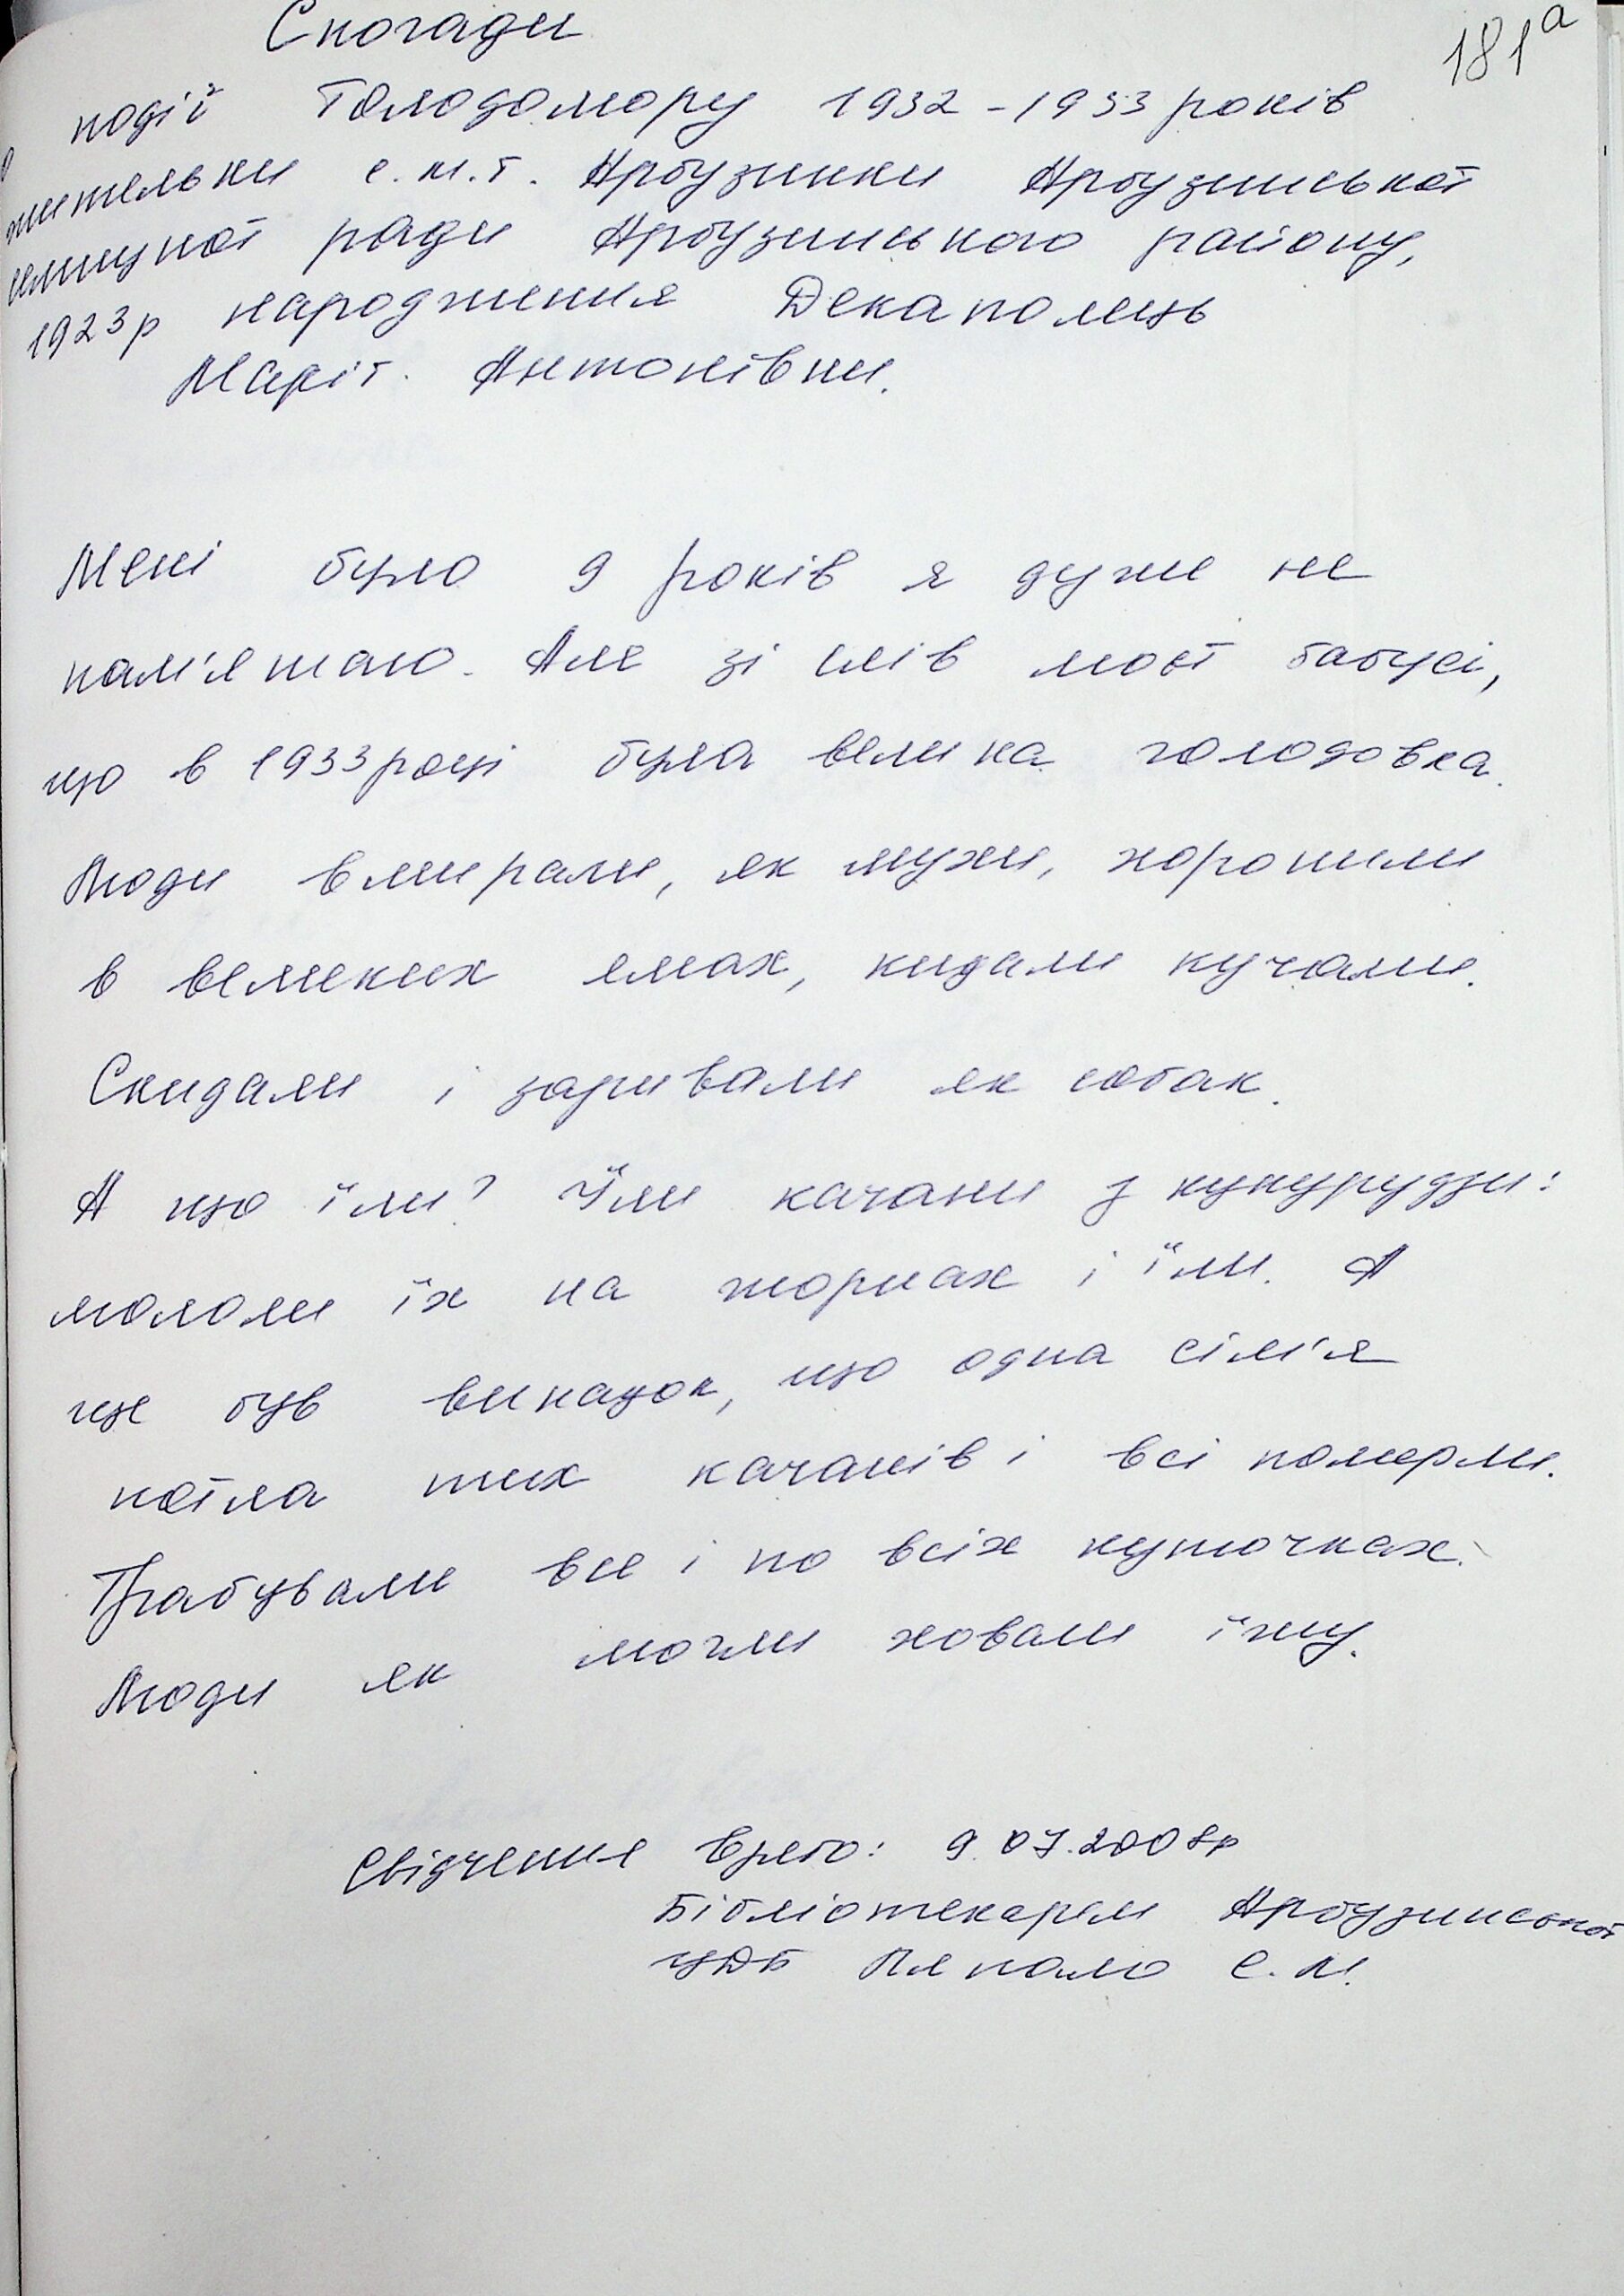 181а
Спогади
події Голодомору 1932-1933 років
жительки с.м.т. Арбузинки Арбузинської
селищної ради Арбузинського району,
1923р народження Декаполець
Марії Антонівни.
Мені було 9 років я дуже не
пам'ятаю. Але зі слів моєї бабусі,
що в 1933 році була велика голодовка.
Люди вмирали, як мухи, хоронили
в великих ямах, кидали кучами.
Скидали і заривали як собак.
А що їли? Їли качани з кукурудзи:
мололи їх на жорнах і їли. А
ще був випадок, що одна сім'я
поїла тих качанів і всі померли.
Грабували все і по всіх куточках.
Люди як могли ховали їжу.
Свідчення взято: 9.07.2008р
Бібліотекарем Арбузинської
ЦДБ Ляпало С.М.